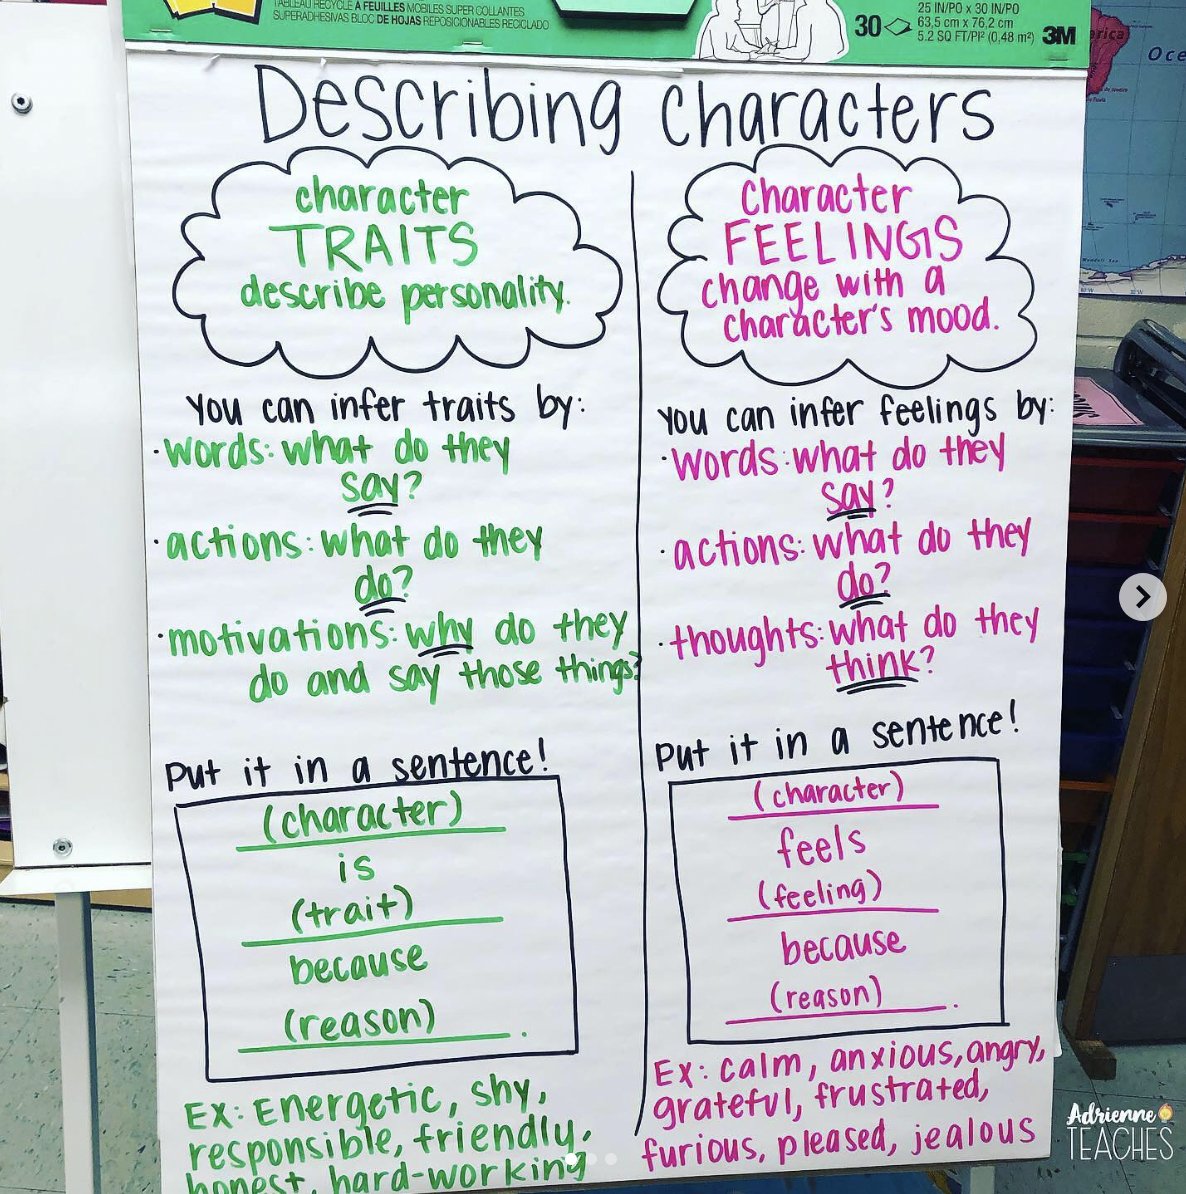 TABLEAU RECYCLE A FEUILLES MOBILES SUPER COLLANTES
SUPERADHESIVAS BLOC DE HOJAS REPOSICIONABLES RECICLADO
30
25 IN/PO x 30 IN/PO
63,5 cm x 76,2 cm
5.2 SQ FT/PI² (0,48 m²)
3M
Describing Characters
character
TRAITS
describe personality.
You can infer traits by:
·words: what do they
say?
·actions: what do they
do?
·motivations: why do they
do and say those things?
Put it in a sentence!
(character)
is
(trait)
because
(reason).
Ex: Energetic, shy,
responsible, friendly,
honest, hard-working
Character
FEELINGS
change with a
character's mood.
You can infer feelings by:
·words: what do they
say?
·actions: what do they
do?
·thoughts: what do they
think?
Put it in a sentence!
(character)
feels
(feeling)
because
(reason).
Ex: calm, anxious, angry,
grateful, frustrated,
furious, pleased, jealous
Adrienne
TEACHES